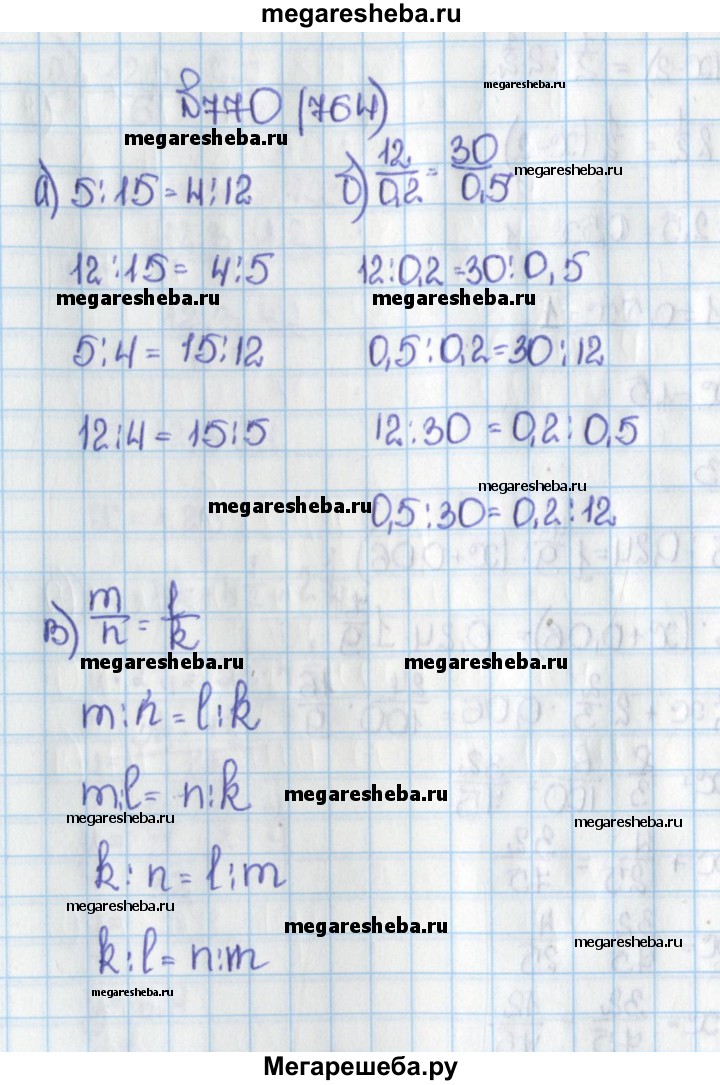 megaresheba.ru
№770 (764)
megaresheba.ru
megaresheba.ru
а) 5:15=4:12
12:15= 4:5
megaresheba.ru
5:4= 15:12
12:4= 15:5
б) 12/0,2 = 30/0,5
megaresheba.ru
12:0,2=30:0,5
megaresheba.ru
0,5:0,2=30:12
12:30 = 0,2:0,5
megaresheba.ru
megaresheba.ru
0,5:30=0,2:12
в) m/n = l/k
megaresheba.ru
megaresheba.ru
m:n=l:k
m:l= n:k
megaresheba.ru
megaresheba.ru
megaresheba.ru
k:n=l:m
megaresheba.ru
megaresheba.ru
k:l= n:m
megaresheba.ru
megaresheba.ru
Мегарешеба.ру